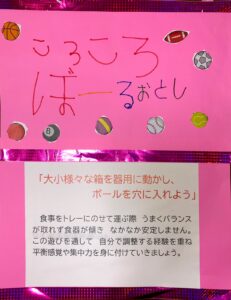 ころころ
ぼーるおとし
「大小様々な箱を器用に動かし、
ボールを穴に入れよう」
食事をトレーにのせて運ぶ際 うまくバランス
が取れず食器が傾き なかなか安定しません。
この遊びを通して 自分で調整する経験を重ね
平衡感覚や集中力を身に付けていきましょう。